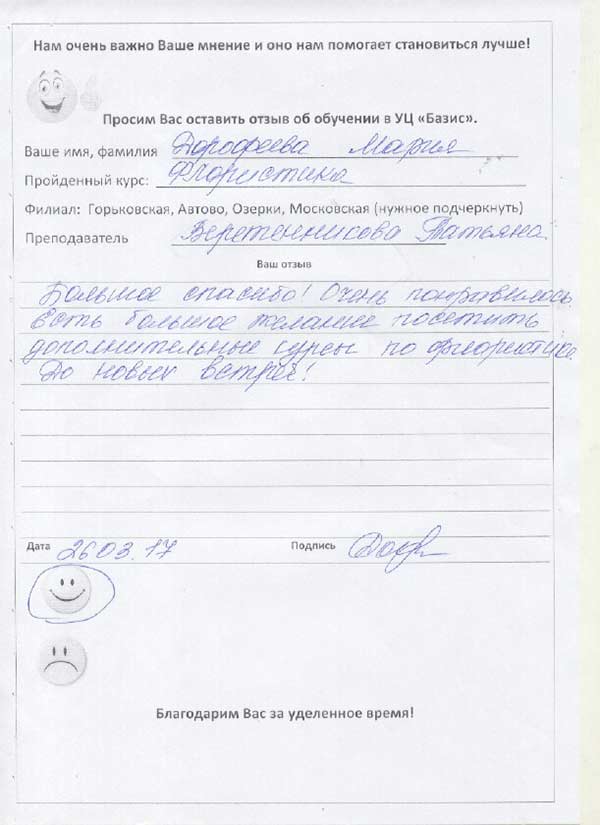 Нам очень важно Ваше мнение и оно нам помогает становиться лучше!
Просим Вас оставить отзыв об обучении в УЦ «Базис».
Ваше имя, фамилия Дорофеева Мария
Пройденный курс: Флористика
Филиал: Горьковская, Автово, Озерки, Московская (нужное подчеркнуть)
Преподаватель Веретенникова Татьяна.
Ваш отзыв
Большое спасибо! Очень понравилось.
Есть большое желание посетить
дополнительные курсы по флористике.
До новых встреч!
Дата 26.03.17 Подпись
Благодарим Вас за уделенное время!